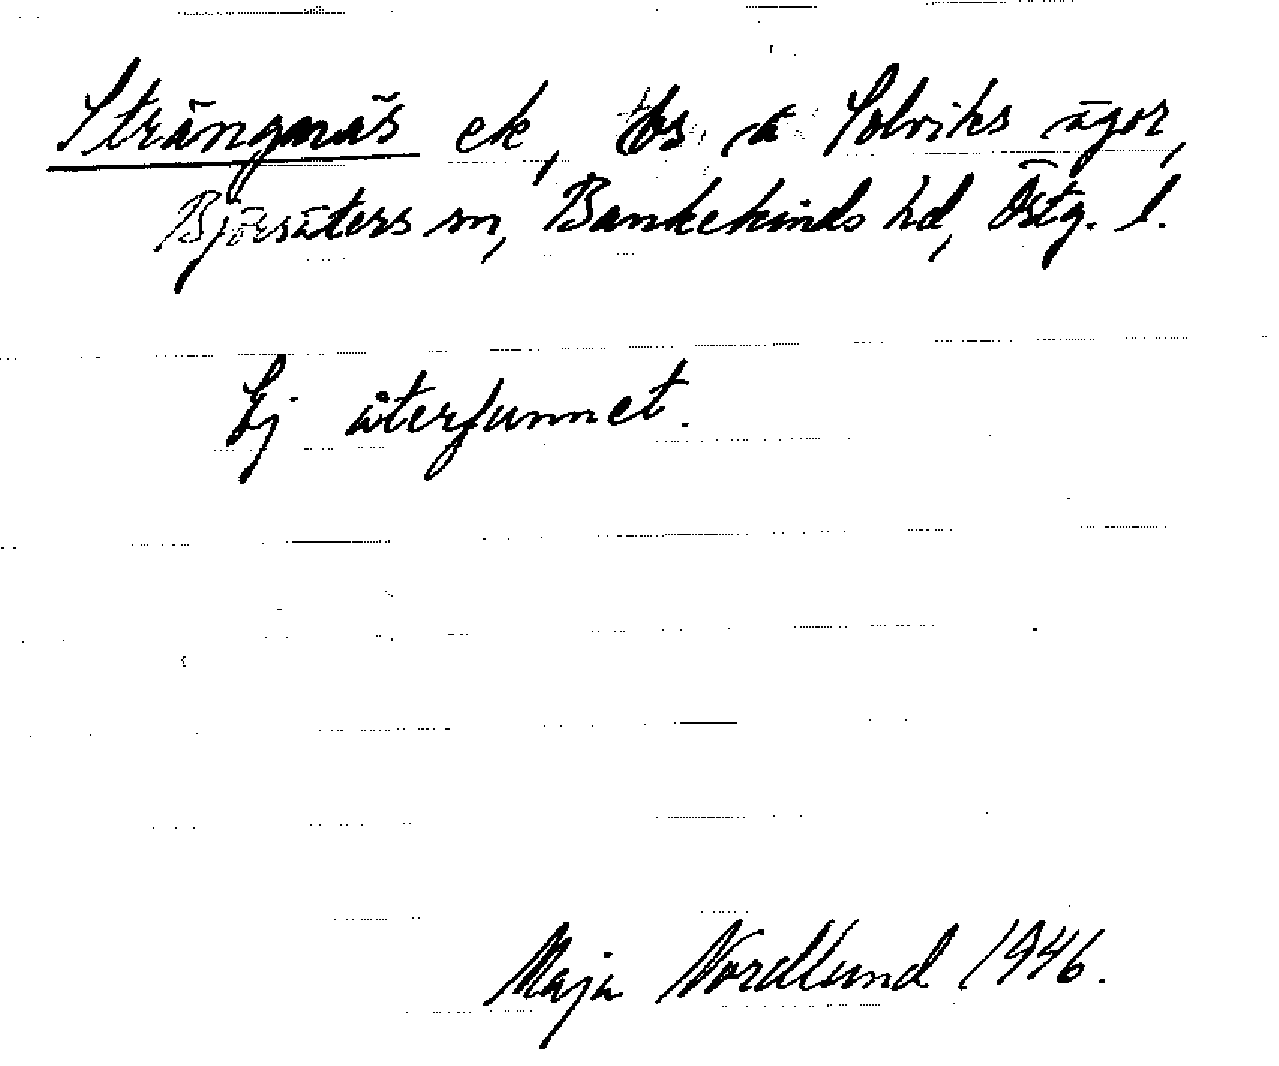 Strängnäs ek, ts. å Solviks ägor,
Björsäters sn, Bankekinds hd, Östg. l.
Ej återfunnet.
Maja Nordlund 1946.